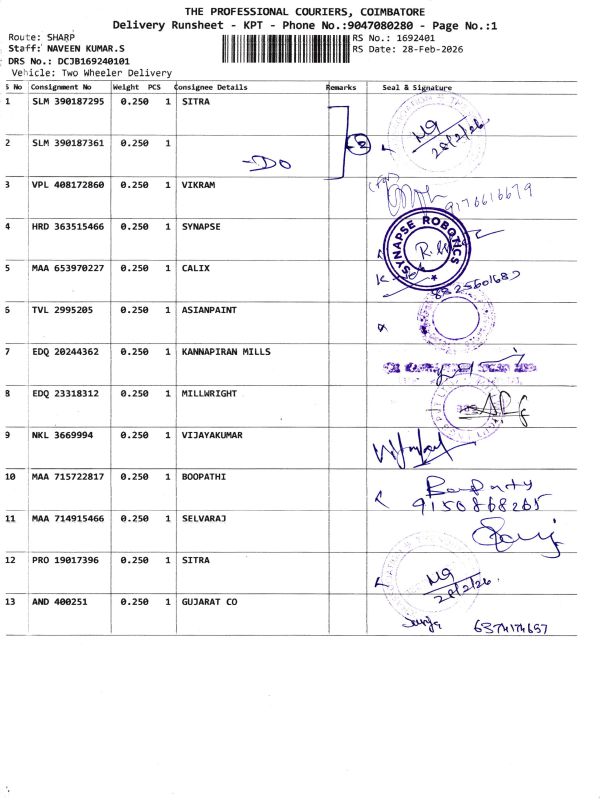 THE PROFESSIONAL COURIERS, COIMBATORE
Delivery Runsheet - KPT - Phone No.:9047080280 - Page No.:1
Route: SHARP RS No.: 1692401
Staff: NAVEEN KUMAR.S RS Date: 28-Feb-2026
DRS No.: DCJB169240101
Vehicle: Two Wheeler Delivery
S No Consignment No Weight PCS Consignee Details Remarks Seal & Signature
1 SLM 390187295 0.250 1 SITRA
28/2/26
2 SLM 390187361 0.250 1 -DO 2
3 VPL 408172860 0.250 1 VIKRAM
9176616679
4 HRD 363515466 0.250 1 SYNAPSE
SYNAPSE ROBOTICS
5 MAA 653970227 0.250 1 CALIX
6 TVL 2995205 0.250 1 ASIANPAINT
7 EDQ 20244362 0.250 1 KANNAPIRAN MILLS
8 EDQ 23318312 0.250 1 MILLWRIGHT
9 NKL 3669994 0.250 1 VIJAYAKUMAR
10 MAA 715722817 0.250 1 BOOPATHI
9150868265
11 MAA 714915466 0.250 1 SELVARAJ
12 PRO 19017396 0.250 1 SITRA
28/2/26
13 AND 400251 0.250 1 GUJARAT CO
6374174657